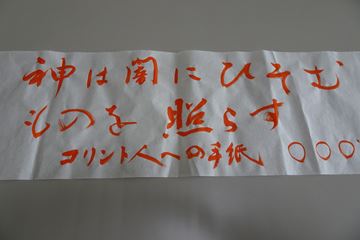 神は闇にひそむ
ものを照らす
コリント人への手紙 ○○○